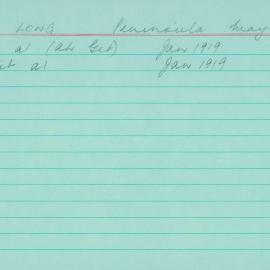 LONG Peninsula May
al (Ah Get) Jan 1919
at al Jan 1919